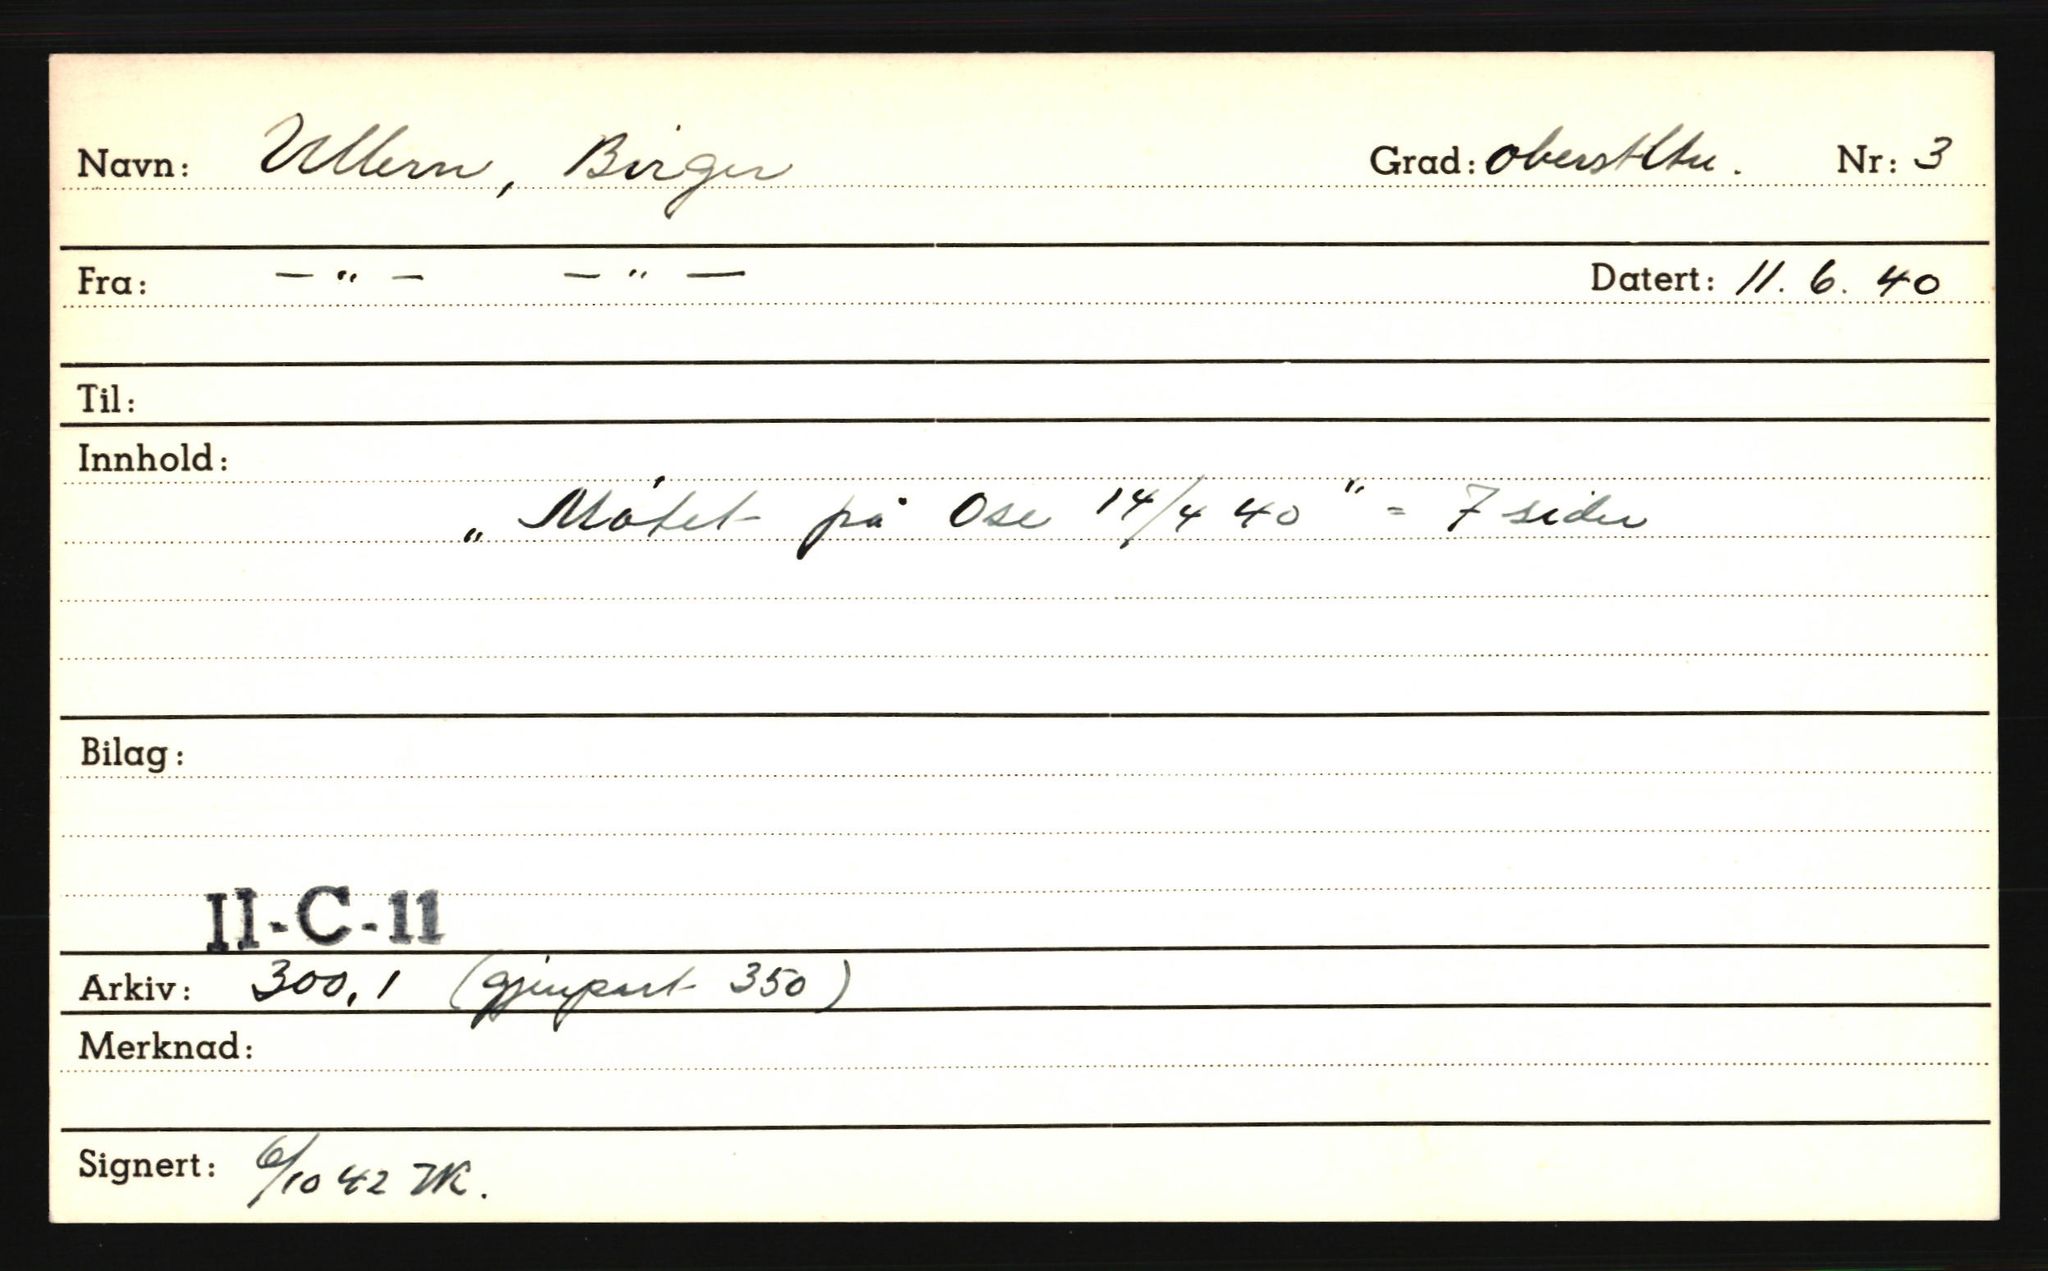 Navn: Ullern, Birger Grad: oberstltn. Nr: 3
Fra: — " — — " — Datert: 11. 6. 40
Til:
Innhold:
„ Møtet på Ose 14/4 40 " = 7 sider
Bilag:
II-C-11
Arkiv: 300,1 (gjenpart 350)
Merknad:
Signert: 6/10 42